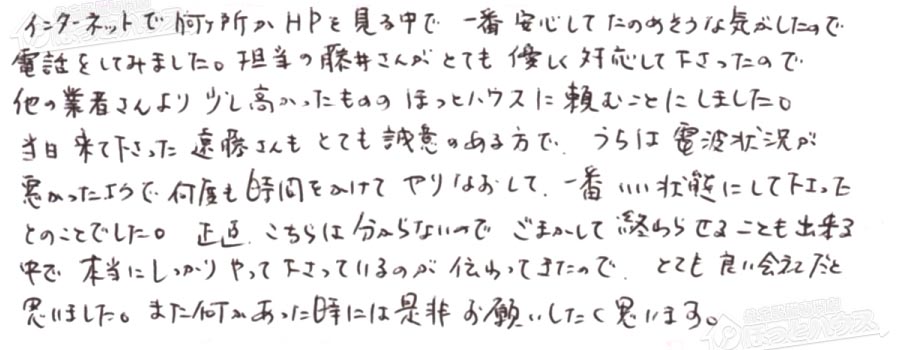 インターネットで何ヶ所かHPを見る中で 一番安心してたのめそうな気がしたので
電話をしてみました。担当の藤井さんがとても優しく対応して下さったので
他の業者さんより少し高かったものの ほっとハウスに頼むことにしました。
当日来て下さった遠勝さんもとても誠意のある方で、うちは電波状況が
悪かったようで何度も時間をかけてやりなおして、一番いい状態にして下さった
とのことでした。正直、こちらは分からないので ごまかして終わらせることも出来る
中で 本当にしっかりやって下さっているのが伝わってきたので、とても良い会社だと
思いました。また何かあった時には是非お願いしたく思います。
ほっとハウス